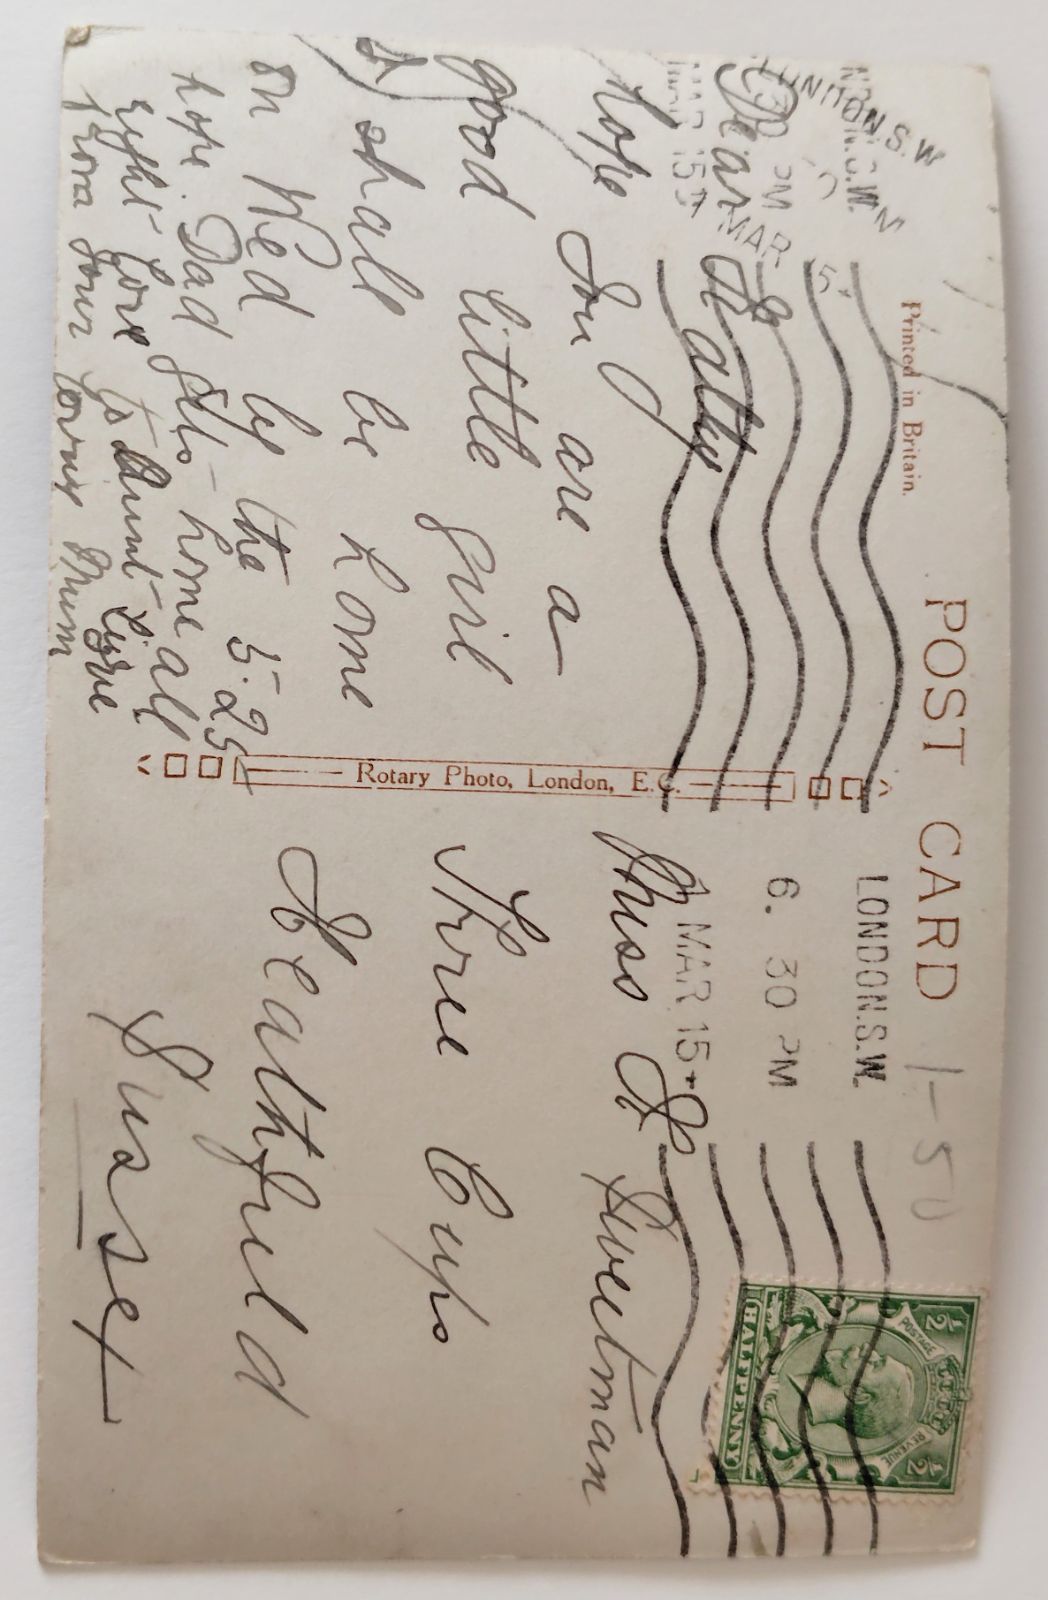 POST CARD
Printed in Britain.
1-50
LONDON.S.W
LONDON.S.W.
6. 30 PM
1 MAR 15
½ POSTAGE REVENUE ½
HALFPENNY
Rotary Photo, London, E.C.
Dear Kathy
hope you are a
good little girl
I shall be home
on Wed by the 5-25
hope Dad gets home all
right love to Aunt
from your loving Mum
Miss K. Sweetman
Three Cups
Heathfield
Sussex